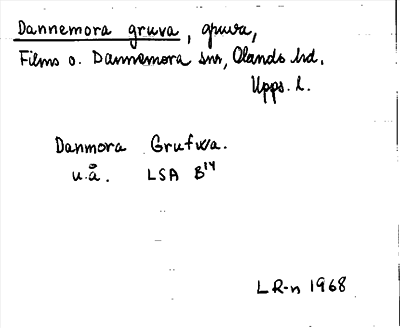 Dannemora gruva, gruva,
Films o. Dannemora snr, Olands hd,
Upps. l.
Danmora Grufwa.
u.å. LSA B14
LR-n 1968